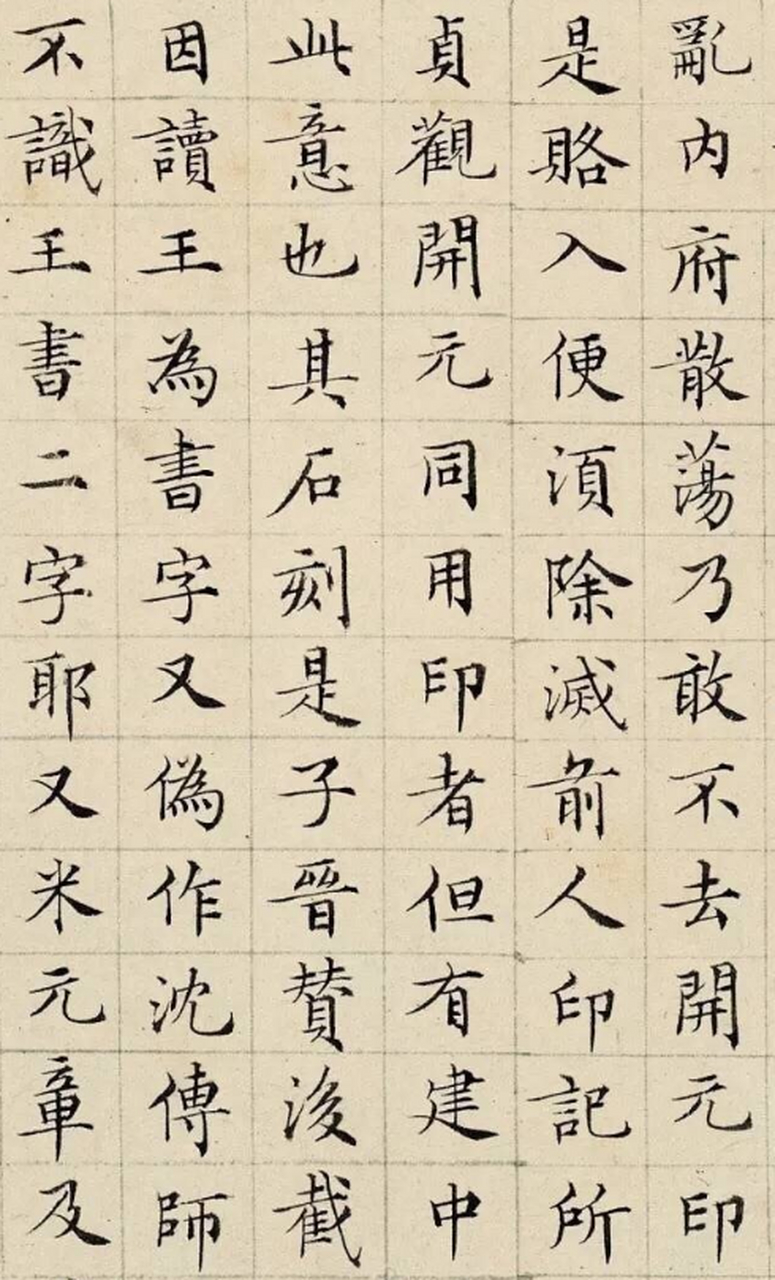 亂内府散蕩乃敢不去開元印
是賂入便須除滅前人印記所
貞觀開元同用印者但有建中
此意也其石刻是子晉賛後截
因讀王為書字又偽作沈傳師
不識王書二字耶又米元章及